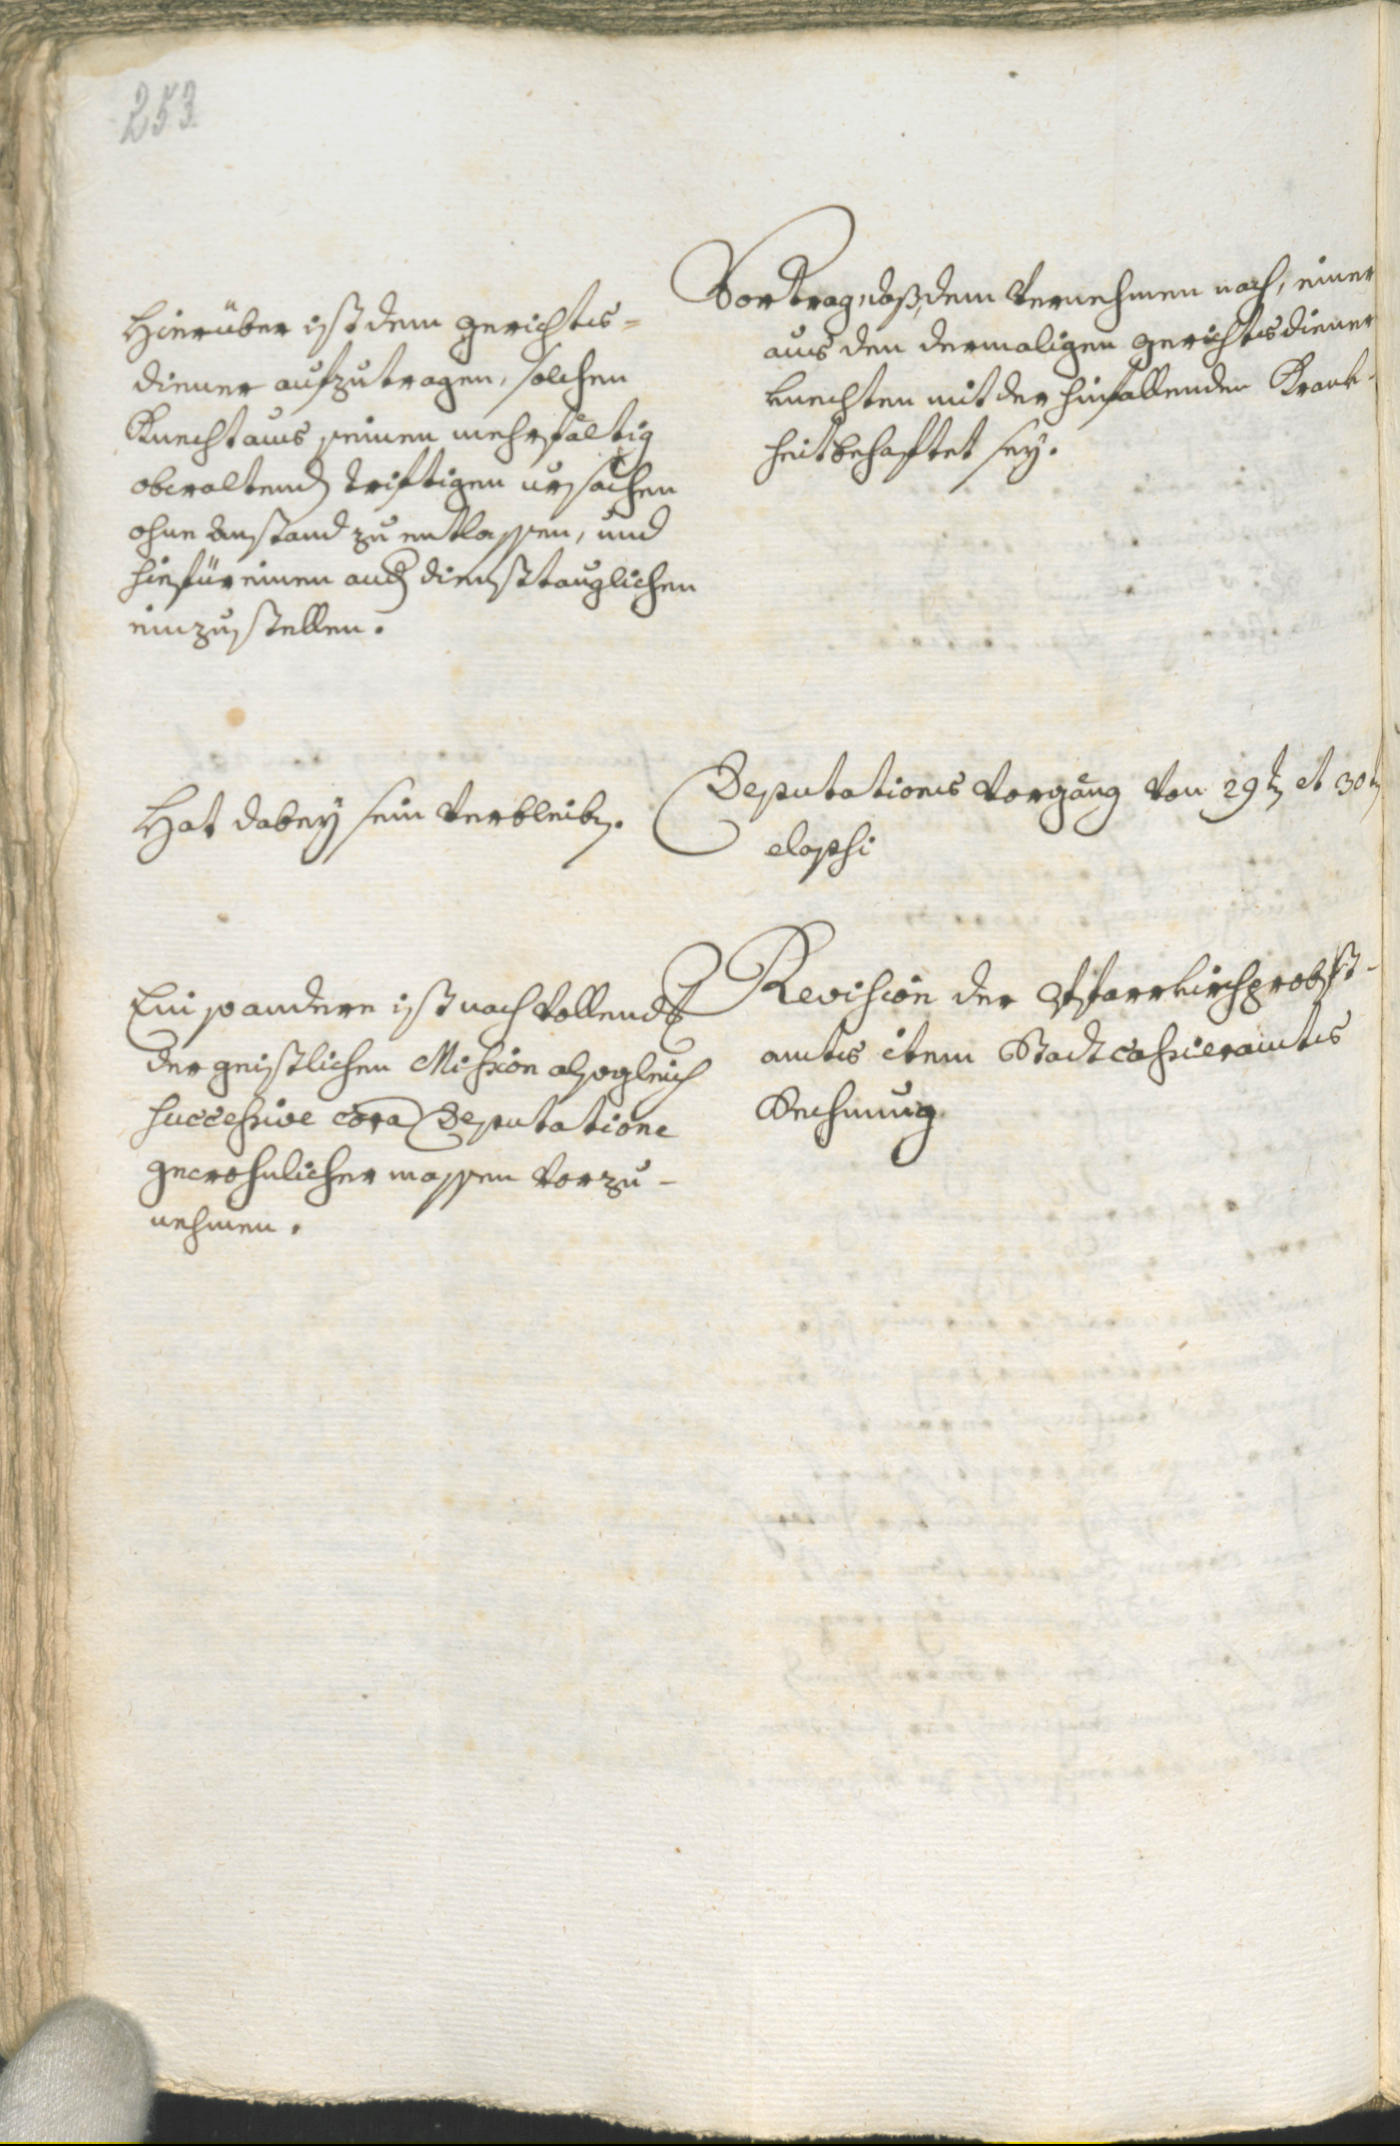 253
Vortrag, daß, dem Vernehmen nach, einer
aus den dermaligen Gerichtsdiener
knechten mit der hinfallenden Krank-
heit behaftet sey.
Hierüber ist dem Gerichts=
diener aufzutragen, solchen
Knecht aus seinen mehrfältig
obwaltend triftigen ursachen
ohne Anstand zu entlassen, und
hiefür einen and diensttauglichen
einzustellen.
Deputations Vorgang Von 29t et 30t
elapsi
Hat dabey sein Verbleib.
Revision der Pfarrkirchprobst-
amts item Stadtcassieramts
Rechnung
Ein so andere ist nach Vollendt
der geistlichen Mission alsogleich
successive cora Deputatione
gewohnlicher massen Vorzu-
nehmen.